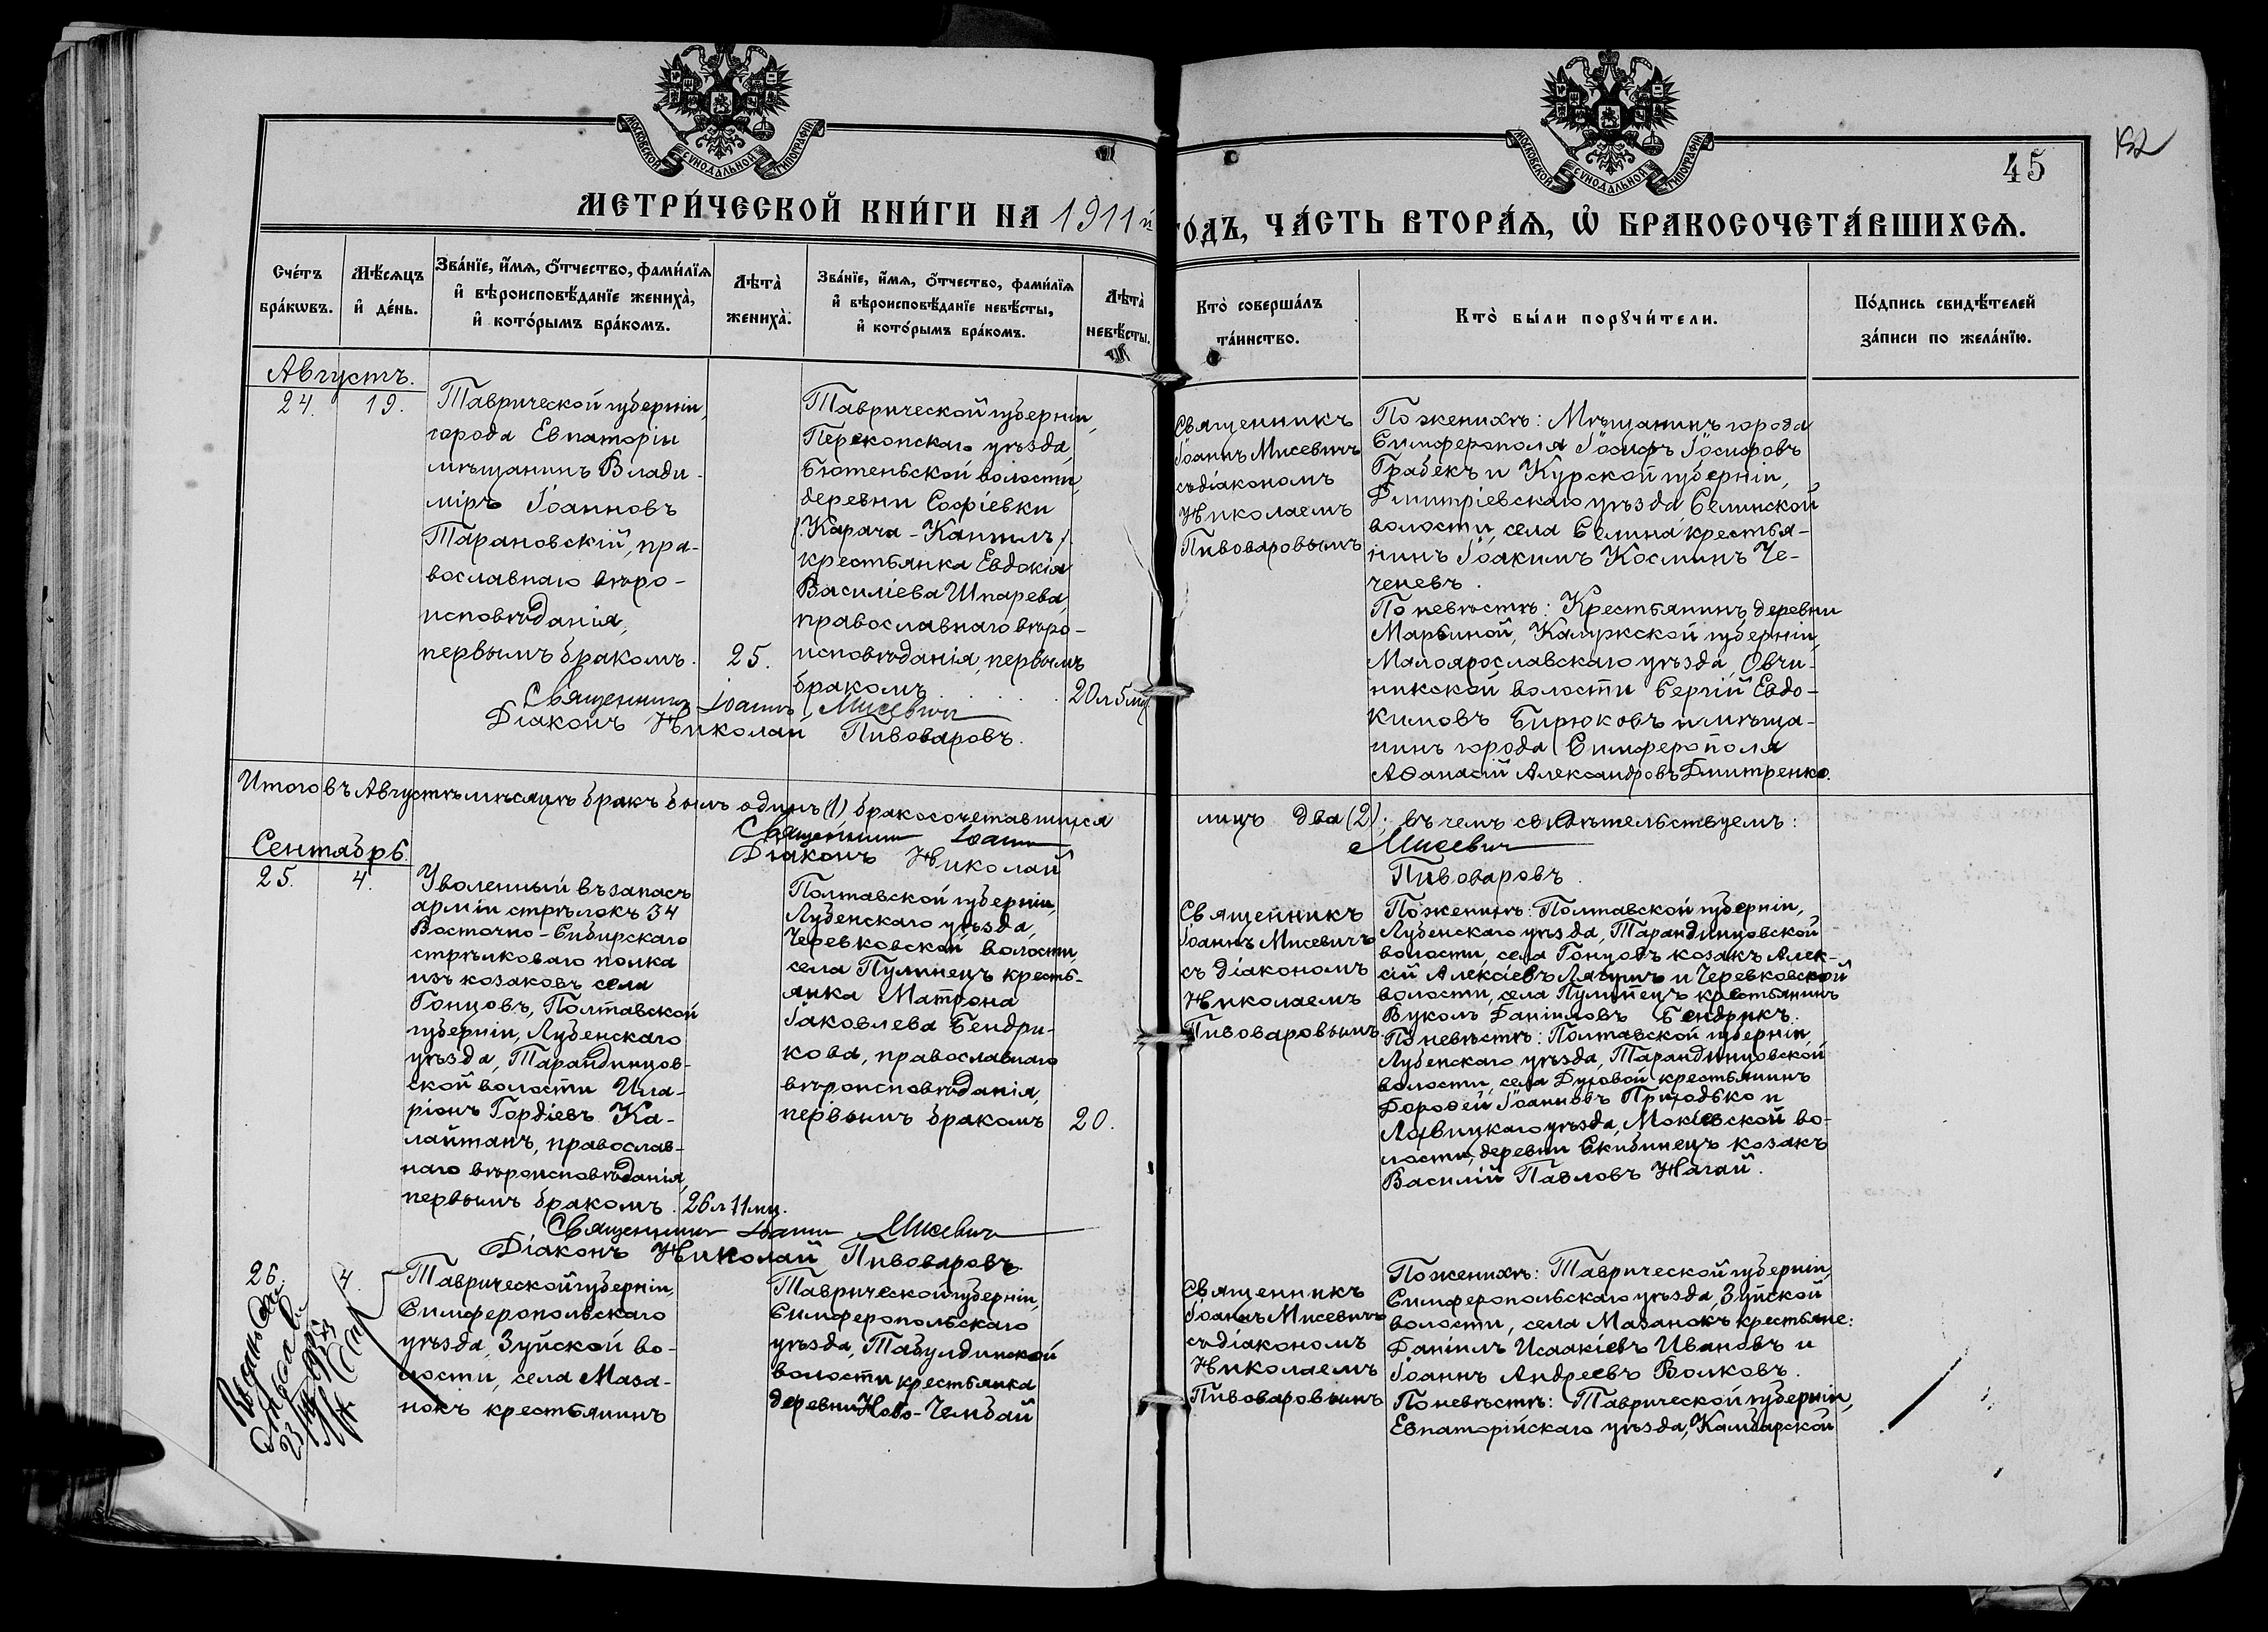 МОСКОВСКОЙ СѴНОДАЛЬНОЙ ТИПОГРАФІИ
МОСКОВСКОЙ СѴНОДАЛЬНОЙ ТИПОГРАФІИ
152
45
МЕТРИ́ЧЕСКОЙ КНИ́ГИ НА 1911 й
ГО́ДЪ, ЧА́СТЬ ВТОРА́Я, Ѡ БРАКОСОЧЕТА́ВШИХСЯ.
Сче́тъ
бра́кωвъ.
Мѣ́сяцъ
и де́нь.
Зва́нїе, и́мя, ѻ́тчество, фами́лїя
и вѣроисповѣ́данїе жениха̀,
и кото́рымъ бра́комъ.
Лѣта̀
жениха̀.
Зва́нїе, и́мя, ѻ́тчество, фами́лїя
и вѣроисповѣ́данїе невѣ́сты,
и кото́рымъ бра́комъ.
Лѣта̀
невѣ́сты.
Кто̀ соверша́лъ
та́инство.
Кто̀ бы́ли порꙋчи́тели.
По́дпись свидѣ́телей
за́писи по жела́нїю.
Августъ.
24.
19.
Таврической губерніи,
города Евпаторіи
мѣщанинъ Влади-
міръ Іоанновъ
Тарановскій, пра-
вославнаго вѣро-
исповѣданія,
первымъ бракомъ.
25.
Таврической губерніи,
Перекопскаго уѣзда,
Бютеньской волости,
деревни Софіевки
/Карача-Кангилъ/
крестьянка Евдокія
Василіева Шпарева,
православнаго вѣро-
исповѣданія, первымъ
бракомъ
20 л 5 мц
Священникъ Іоаннъ Мисевичъ
Діаконъ Николай Пивоваровъ.
Священникъ
Іоаннъ Мисевичъ
съ діакономъ
Николаемъ
Пивоваровымъ
По женихѣ: Мѣщанинъ города
Симферополя Іосифъ Іосифовъ
Грабекъ и Курской губерніи,
Дмитріевскаго уѣзда Селинской
волости, села Селина крестья-
нинъ Іоакимъ Косминъ Че-
ченевъ.
По невѣстѣ: Крестьянинъ деревни
Марьиной, Калужской губерніи,
Малоярославскаго уѣзда, Овчи-
никской волости Сергій Евдо-
кимовъ Бирюковъ и мѣща-
нинъ города Симферополя
Аѳанасій Александровъ Дмитренко.
Итого въ Августѣ мѣсяцѣ бракъ былъ одинъ (1) бракосочетавшихся
лицъ два (2); въ чемъ свидѣтельствуемъ:
Священникъ Іоаннъ
Мисевичъ
Діаконъ Николай
Пивоваровъ.
Сентябрь.
25.
4.
Уволенный въ запасъ
арміи стрѣлокъ 34
Восточно-Сибирскаго
стрѣлковаго полка
изъ козаковъ села
Гонцовъ, Полтавской
губерніи, Лубенскаго
уѣзда, Тарандинцов-
ской волости Ила-
ріонъ Гордіевъ Ка-
лайтанъ, православ-
наго вѣроисповѣданія,
первымъ бракомъ.
26 л 11 мц.
Полтавской губерніи,
Лубенскаго уѣзда,
Черевковской волости,
села Пулинецъ кресть-
янка Матрона
Іаковлева Бендри-
кова, православнаго
вѣроисповѣданія,
первымъ бракомъ
20.
Священникъ Іоаннъ Мисевичъ
Діаконъ Николай Пивоваровъ.
Священникъ
Іоаннъ Мисевичъ
съ діакономъ
Николаемъ
Пивоваровымъ
По женихѣ: Полтавской губерніи,
Лубенскаго уѣзда, Тарандинцовской
волости, села Гонцовъ козакъ Алек-
сій Алексіевъ и Черевковской
волости, села Пулинецъ крестьянинъ
Вуколъ Даніиловъ Бендрикъ.
По невѣстѣ: Полтавской губерніи,
Лубенскаго уѣзда, Тарандинцовской
волости, села Духовой крестьянинъ
Дороѳей Іоанновъ Приходько и
Лохвицкаго уѣзда, Мокіевской во-
лости, деревни Скибинецъ козакъ
Василій Павловъ Нагай.
26.
4.
Таврической губерніи,
Симферопольскаго
уѣзда, Зуйской во-
лости, села Маза-
нокъ крестьянинъ
Таврической губерніи,
Симферопольскаго
уѣзда, Табулдинской
волости крестьянка
деревни Ново-Чембай
Священникъ
Іоаннъ Мисевичъ
съ діакономъ
Николаемъ
Пивоваровымъ
По женихѣ: Таврической губерніи,
Симферопольскаго уѣзда, Зуйской
волости, села Мазанокъ крестьяне:
Даніилъ Исаакіевъ Ивановъ и
Іоаннъ Андреевъ Волковъ.
По невѣстѣ: Таврической губерніи,
Евпаторійскаго уѣзда, Камбарской